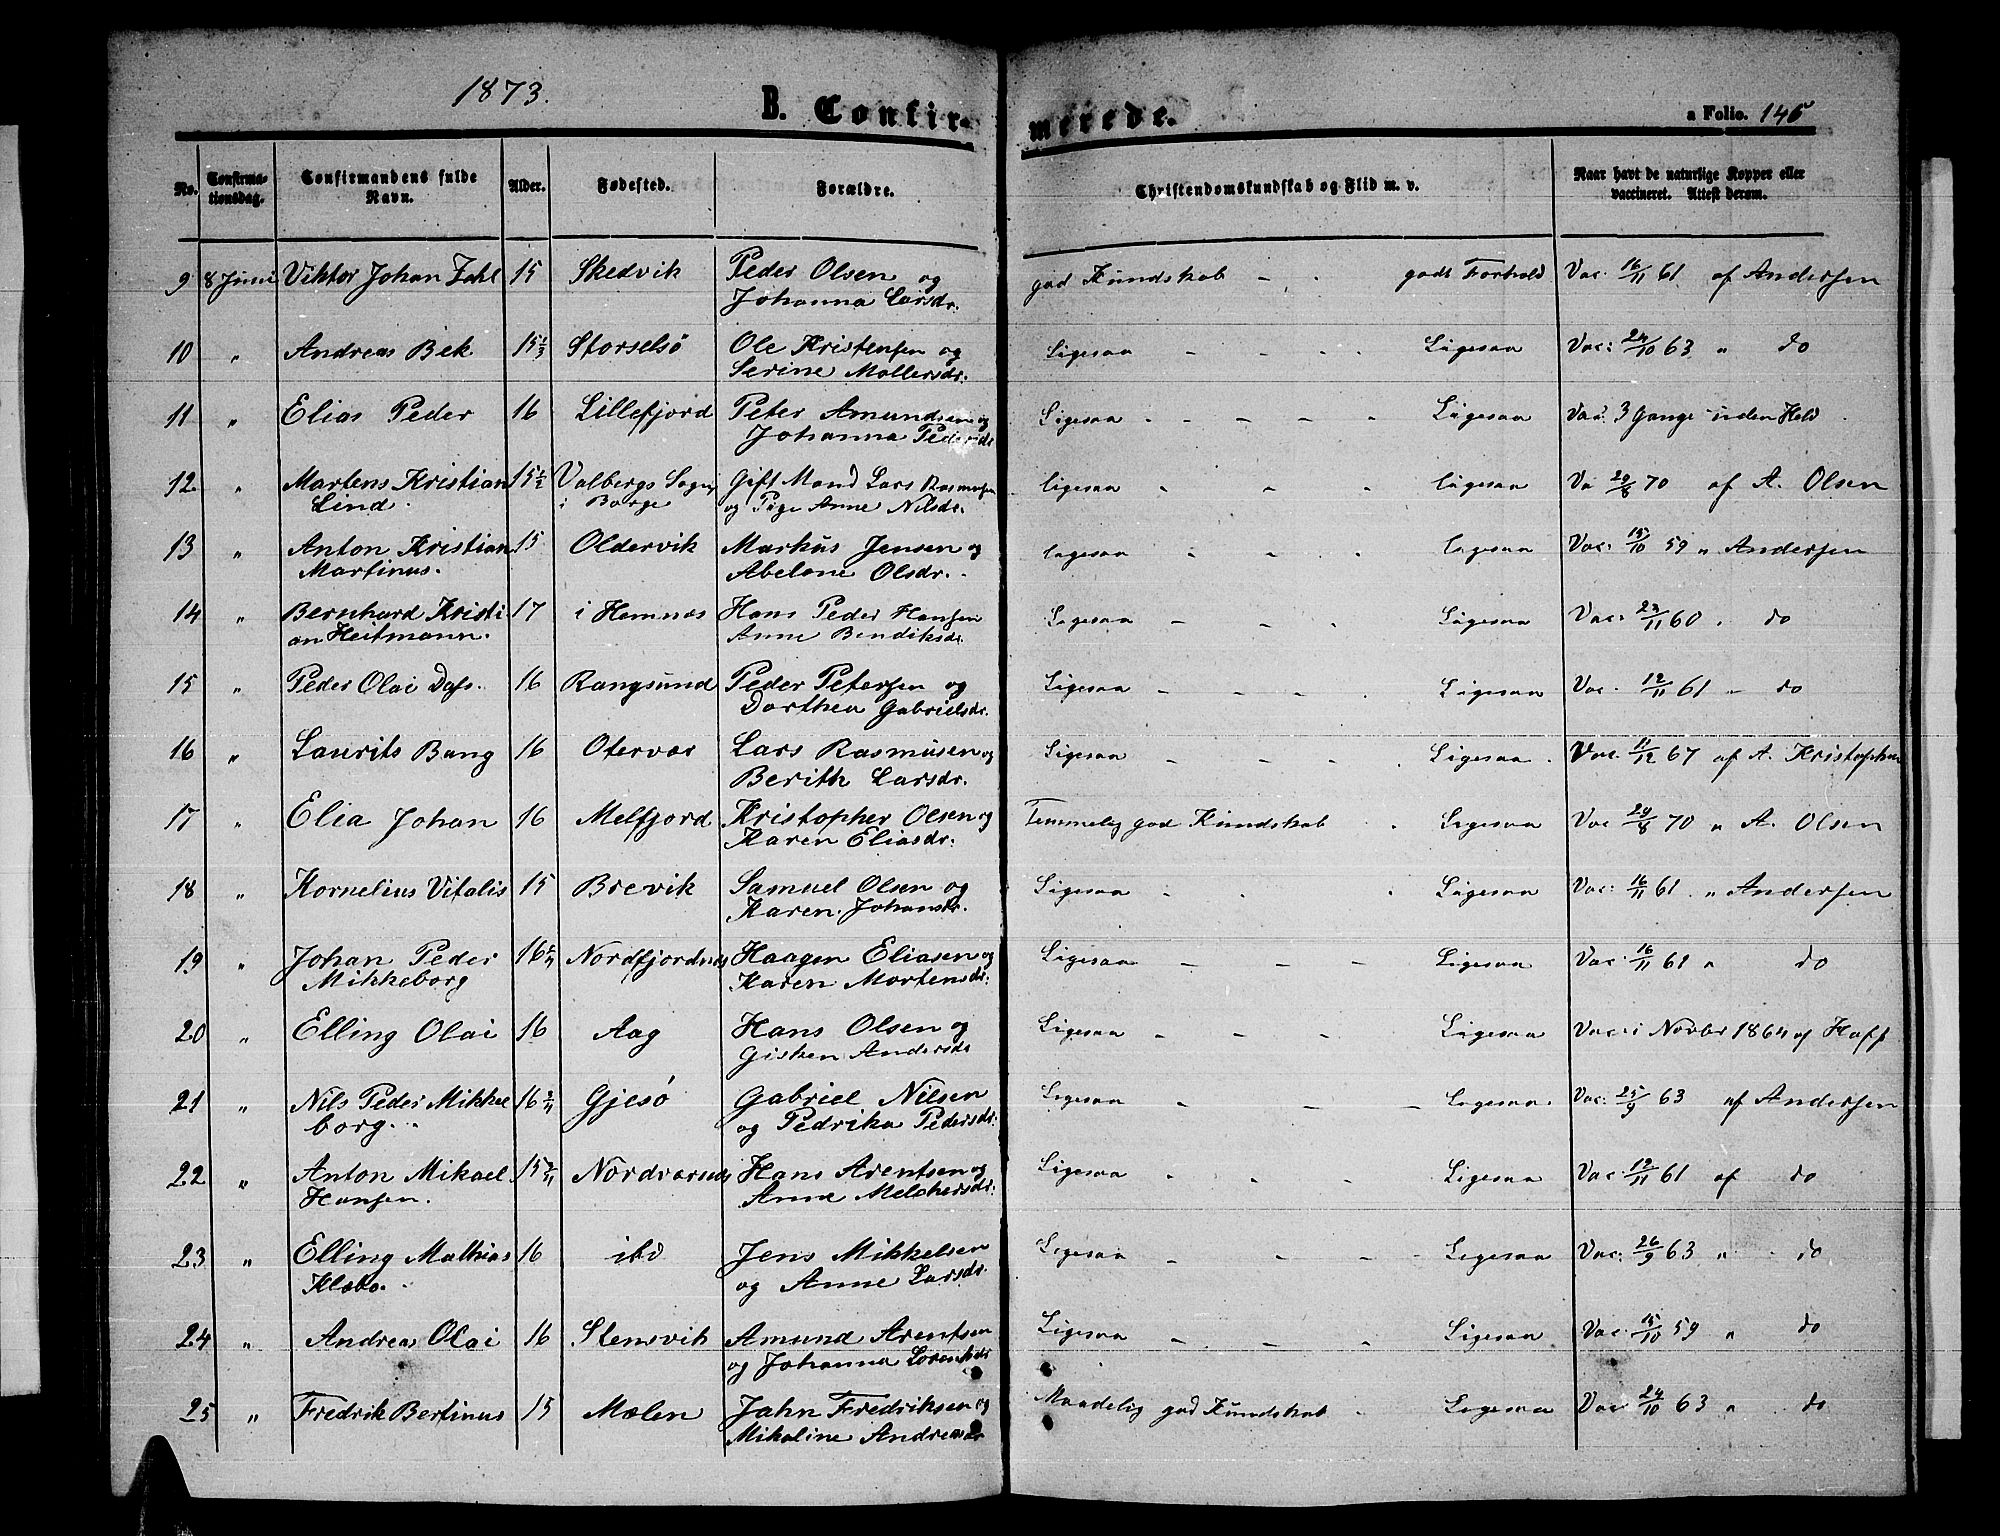 1873.
B. Confir-
merede.
a Folio. 145
No. Confirma-tionsdag. Confirmandens fulde Navn. Alder. Fødested. Forældre. Christendomskundskab og Flid m. v. Naar havt de naturlige Kopper eller vaccineret. Attest derom.
9 8 Juni Viktor Johan Zahl 15 Skedvik Peder Olsen og god Kundskab - . godt Forhold Vac. 16/11 61 af Andersen
Johanna Larsdr.
10 " Andreas Bek 15 1/3 Storselsø Ole Kristensen og Ligesaa - - . . Ligesaa Vac: 24/10 63 " do
Serine Mollersdr.
11 " Elias Peder 16 Lillefjord Peter Amundsen og Ligesaa - - - - Ligesaa Vac. 3 Gange uden Held
Johanna Pedersdr
12 " Martens Kristian 15 1/2 Valbergs Sogn Gift Mand Lars Rasmusen Ligesaa - - - Ligesaa Va 29/8 70 af A. Olsen
Lind. i Borge og Pige Anne Nilsdr.
13 " Anton Kristian 15 Oldervik Markus Jensen og Ligesaa - - . Ligesaa Vac: 15/10 59 " Andersen
Martinus. Abelone Olsdr.
14 " Bernhard Kristi- 17 i Hemnæs Hans Peder Hansen Ligesaa - - . Ligesaa Vac: 23/11 60 . do
an Heitmann. Anne Bendiksdr.
15 " Peder Olai Dass. 16 Rangsund Peder Petersen og Ligesaa - - - - Ligesaa Vac. 12/11 61 " do
Dorthea Gabrielsdr.
16 " Laurits Bang 16 Otervær Lars Rasmusen og Ligesaa - - - Ligesaa . Vac. 11/12 67 af A. Kristophersen
Berith Larsdr.
17 " Elia Johan 16 Melfjord Kristopher Olsen og Temmelig god Kundskab . Ligesaa Vac 29/8 70 " A. Olsen
Karen Eliasdr.
18 " Kornelius Vitalis 15 Brevik Samuel Olsen og Ligesaa - . . Ligesaa Vac: 16/11 61. " Andersen
Karen Johansdr.
19 " Johan Peder 16 Nordfjordnes Haagen Eliasen og Ligesaa - - - Ligesaa Vac. 16/11 61 " do
Mikkeborg Karen Mortensdr.
20 " Elling Olai 16 Aag Hans Olsen og Ligesaa - - - Ligesaa Vac. i Novbr 1864 af Hoff
Gisken Andersdr
21 " Nils Peder Mikkel 16 2/11 Gjesø Gabriel Nilsen Ligesaa - - - - Ligesaa. Vac. 25/9 63 af Andersen
borg. og Pedrika Pedersdr.
22 " Anton Mikael 15 Nordværnes Hans Arentsen og Ligesaa . . . Ligesaa Vac. 12/11 61 af do
Hansen. Anne Melchersdr.
23 " Elling Mathias 16 ibd Jens Mikkelsen Ligesaa - - - Ligesaa Vac: 26/9 63 " do
Klæbo. og Anne Larsdr
24 " Andreas Olai 16 Stensvik Amund Arentsen Ligesaa - - - Ligesaa Vac. 15/10 59 " do
og Johanna Lorentsdr
25 " Fredrik Bertinus 15 Mælen Jahn Fredriksen og Maadelig god Kundskab . Ligesaa Vac 24/10 63 " do
Mikaline Andreasdr